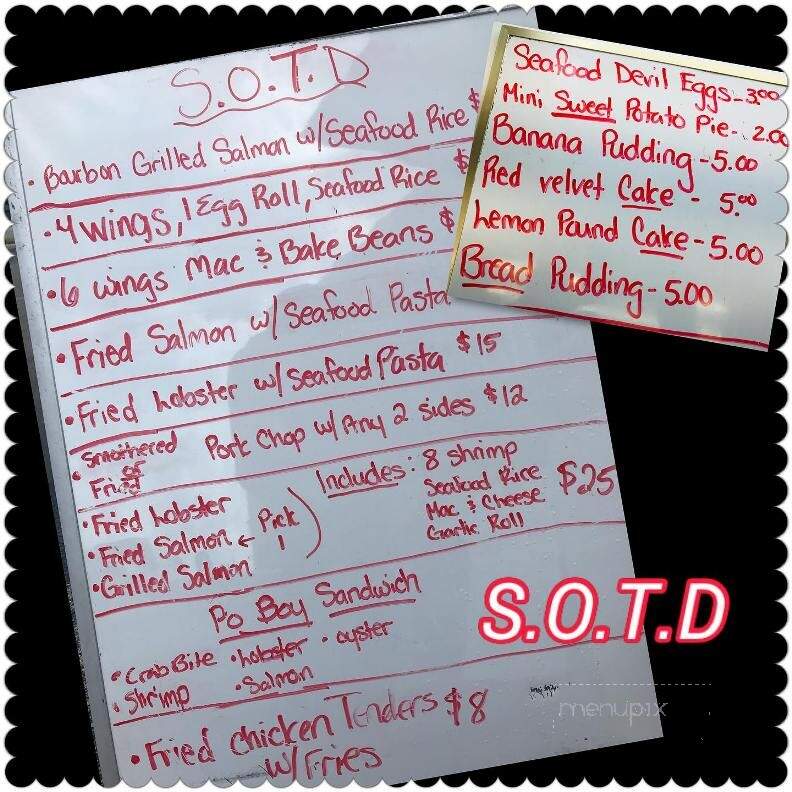 S.O.T.D
• Bourbon Grilled Salmon w/Seafood Rice $
• 4 wings, 1 Egg Roll, Seafood Rice $
• 6 wings Mac & Bake Beans $
• Fried Salmon w/ Seafood Pasta
• Fried Lobster w/ Seafood Pasta $15
• Smothered
or
Fried
Pork Chop w/ Any 2 sides $12
• Fried Lobster
• Fried Salmon ← Pick
1
• Grilled Salmon
Includes: 8 shrimp
Seafood Rice
Mac & Cheese
Garlic Roll
$25
Po Boy Sandwich
• Crab Bite • Lobster • oyster
• Shrimp • Salmon
• Fried Chicken Tenders $8
w/ Fries
Seafood Devil Eggs - 3.00
Mini Sweet Potato Pie - 2.00
Banana Pudding - 5.00
Red velvet Cake - 5.00
Lemon Pound Cake - 5.00
Bread Pudding - 5.00
S.O.T.D
menupix